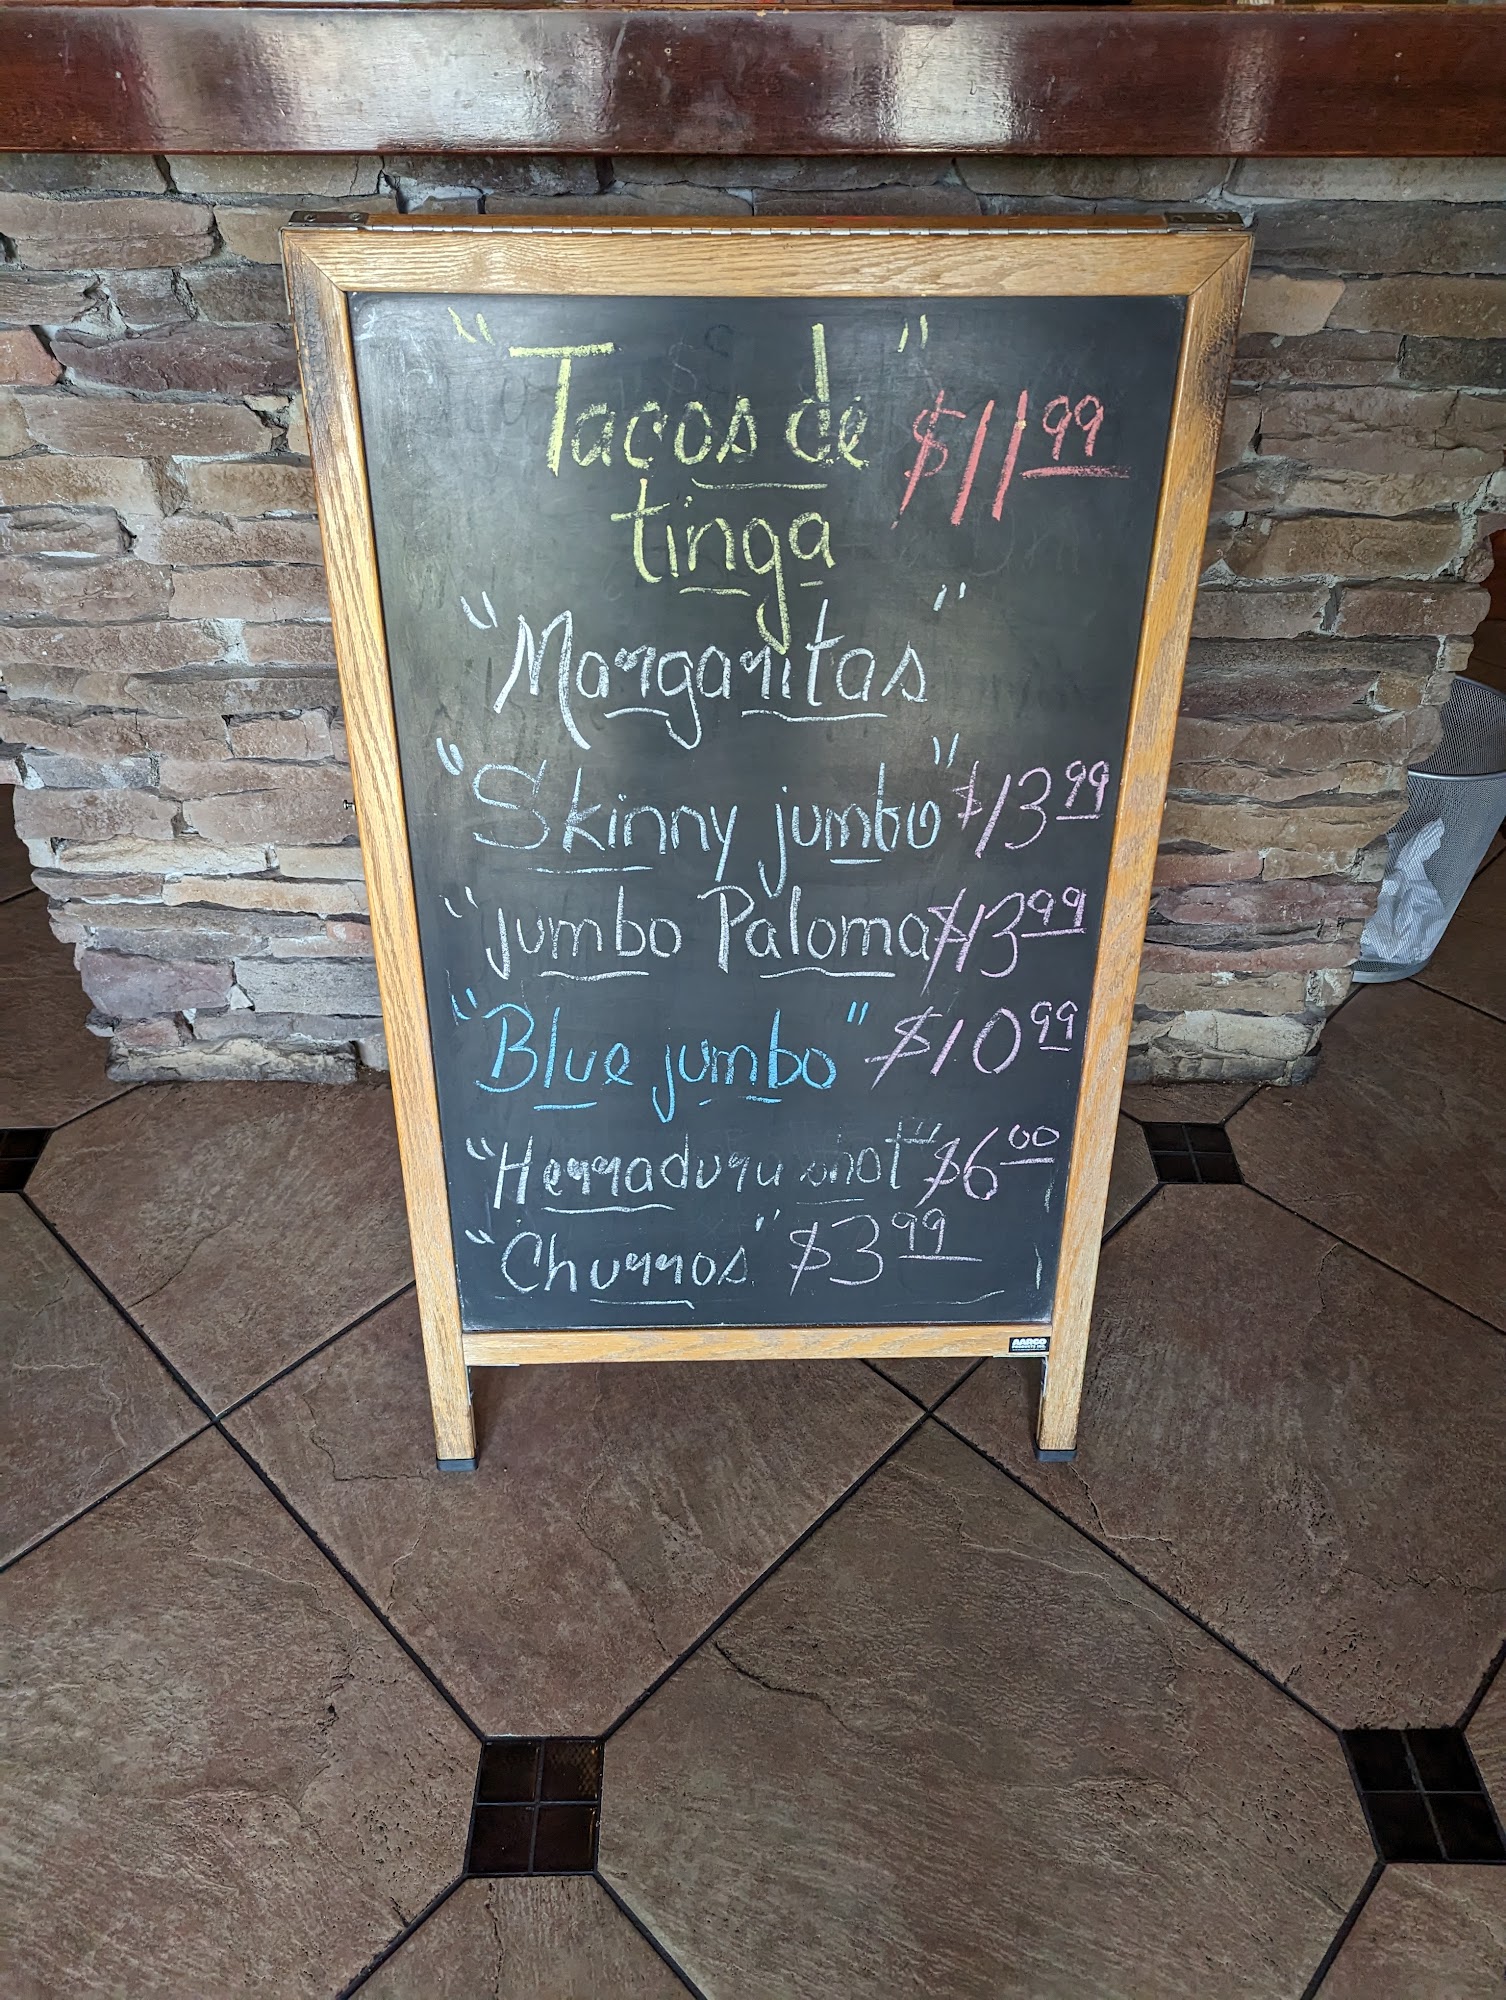 "Tacos de" $11.99
tinga
"Margaritas"
"Skinny jumbo" $13.99
"jumbo Paloma $13.99
"Blue jumbo" $10.99
"Herradura shot" $6.00
"Churros" $3.99
AARCO